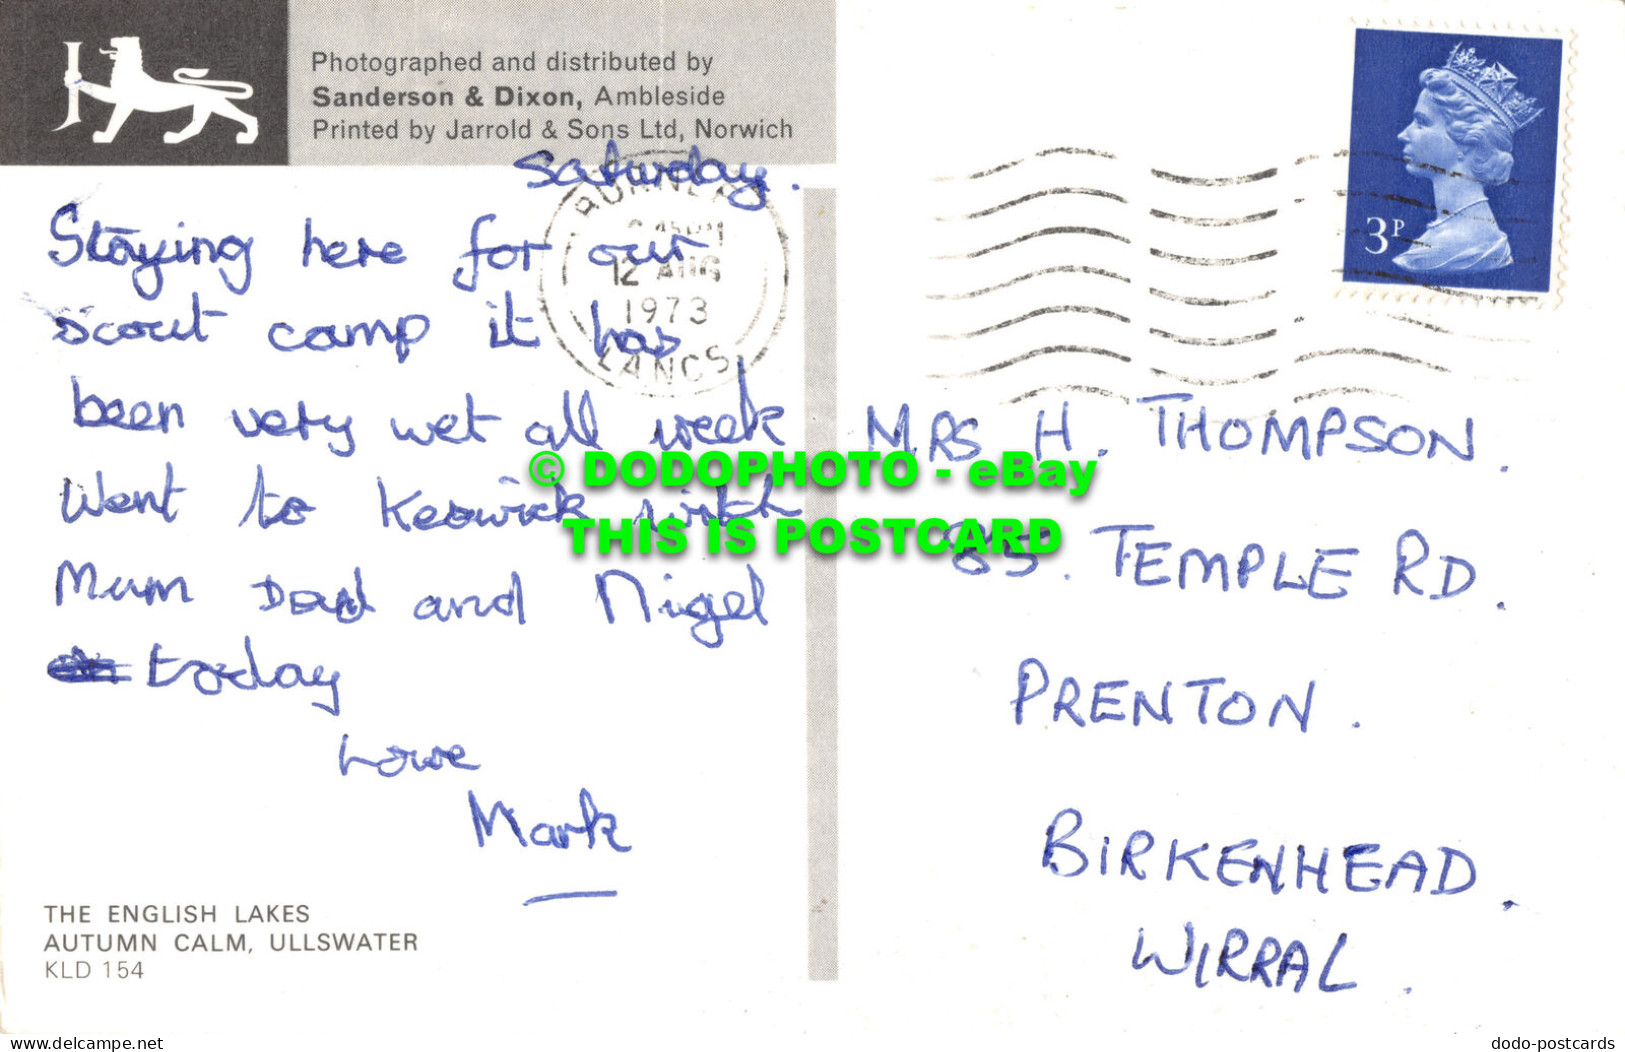 Photographed and distributed by
Sanderson & Dixon, Ambleside
Printed by Jarrold & Sons Ltd, Norwich
Saturday.
Staying here for our
scout camp it has
been very wet all week
Went to Keswick with
Mum Dad and Nigel
today
Love
Mark
THE ENGLISH LAKES
AUTUMN CALM, ULLSWATER
KLD 154
12 AUG
1973
LANCS
3P
MRS H. THOMPSON.
85. TEMPLE RD.
PRENTON.
BIRKENHEAD.
WIRRAL.
© DODOPHOTO - eBay
THIS IS POSTCARD
delcampe.net
dodo-postcards